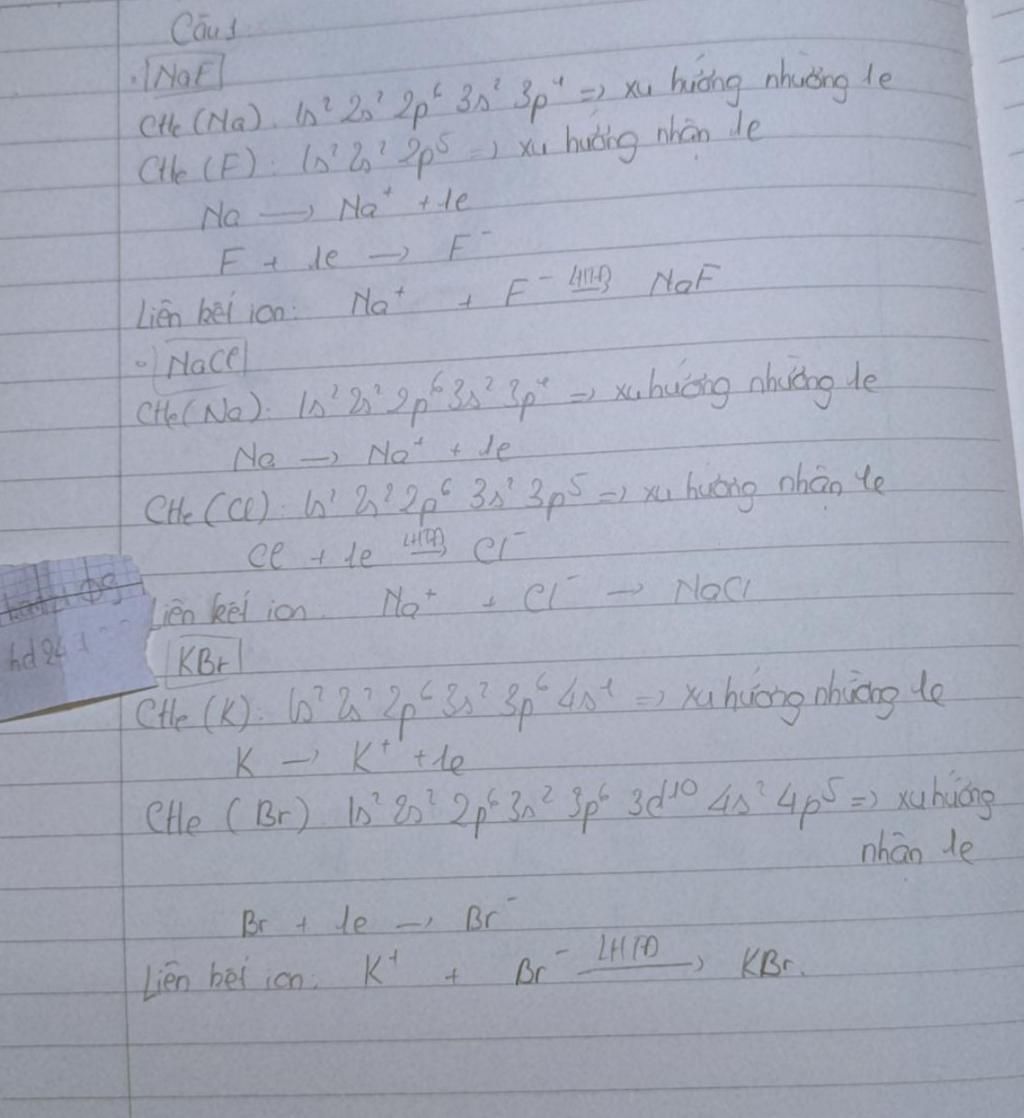 Câu 1
• NaF
CHe (Na): 1s² 2s² 2p⁶ 3s² 3p¹ => xu hướng nhường 1e
CHe (F): 1s² 2s² 2p⁵ => xu hướng nhận 1e
Na → Na⁺ + 1e
F + 1e → F⁻
Liên kết ion: Na⁺ + F⁻ LHTĐ→ NaF
• NaCl
CHe (Na): 1s² 2s² 2p⁶ 3s² 3p¹ => xu hướng nhường 1e
Na → Na⁺ + 1e
CHe (Cl): 1s² 2s² 2p⁶ 3s² 3p⁵ => xu hướng nhận 1e
Cl + 1e LHTĐ→ Cl⁻
Liên kết ion: Na⁺ + Cl⁻ → NaCl
hd 24
KBr
CHe (K): 1s² 2s² 2p⁶ 3s² 3p⁶ 4s¹ => xu hướng nhường 1e
K → K⁺ + 1e
CHe (Br) 1s² 2s² 2p⁶ 3s² 3p⁶ 3d¹⁰ 4s² 4p⁵ => xu hướng
nhận 1e
Br + 1e → Br⁻
Liên kết ion: K⁺ + Br⁻ LHTĐ→ KBr.